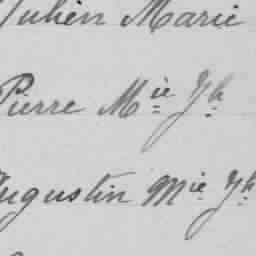 Julien Marie
Pierre Mie Jh
Augustin Mie Jh